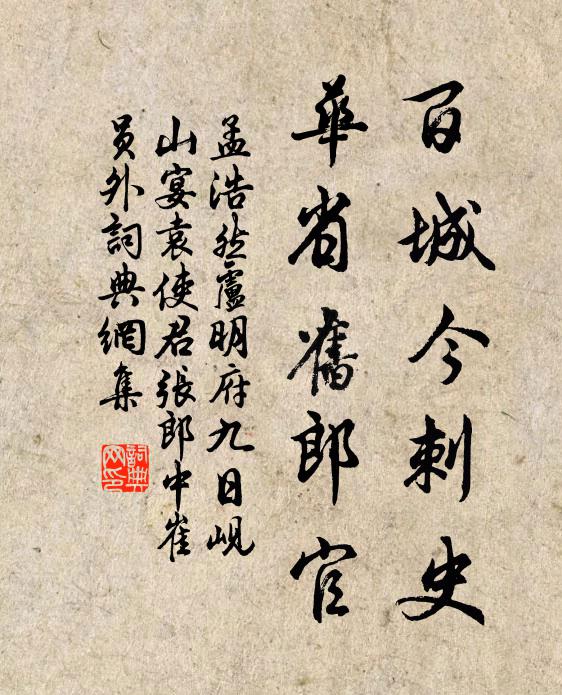 百城今刺史
華省舊郎官
孟浩然盧明府九日峴
山宴袁使君張郎中崔
員外詞典網集
詞典
网印